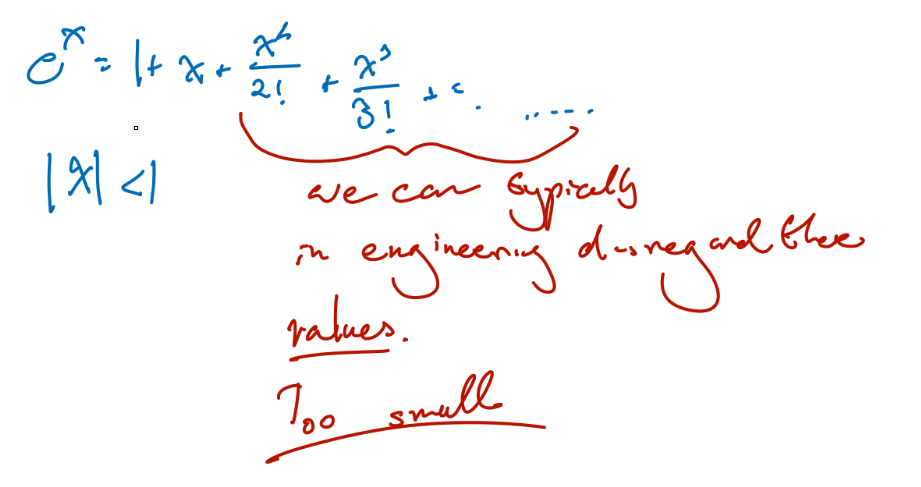 e^x = 1 + x + x^2/2! + x^3/3! + .. ......
|x| < 1
we can typically
in engineering disregard these
values.
Too small